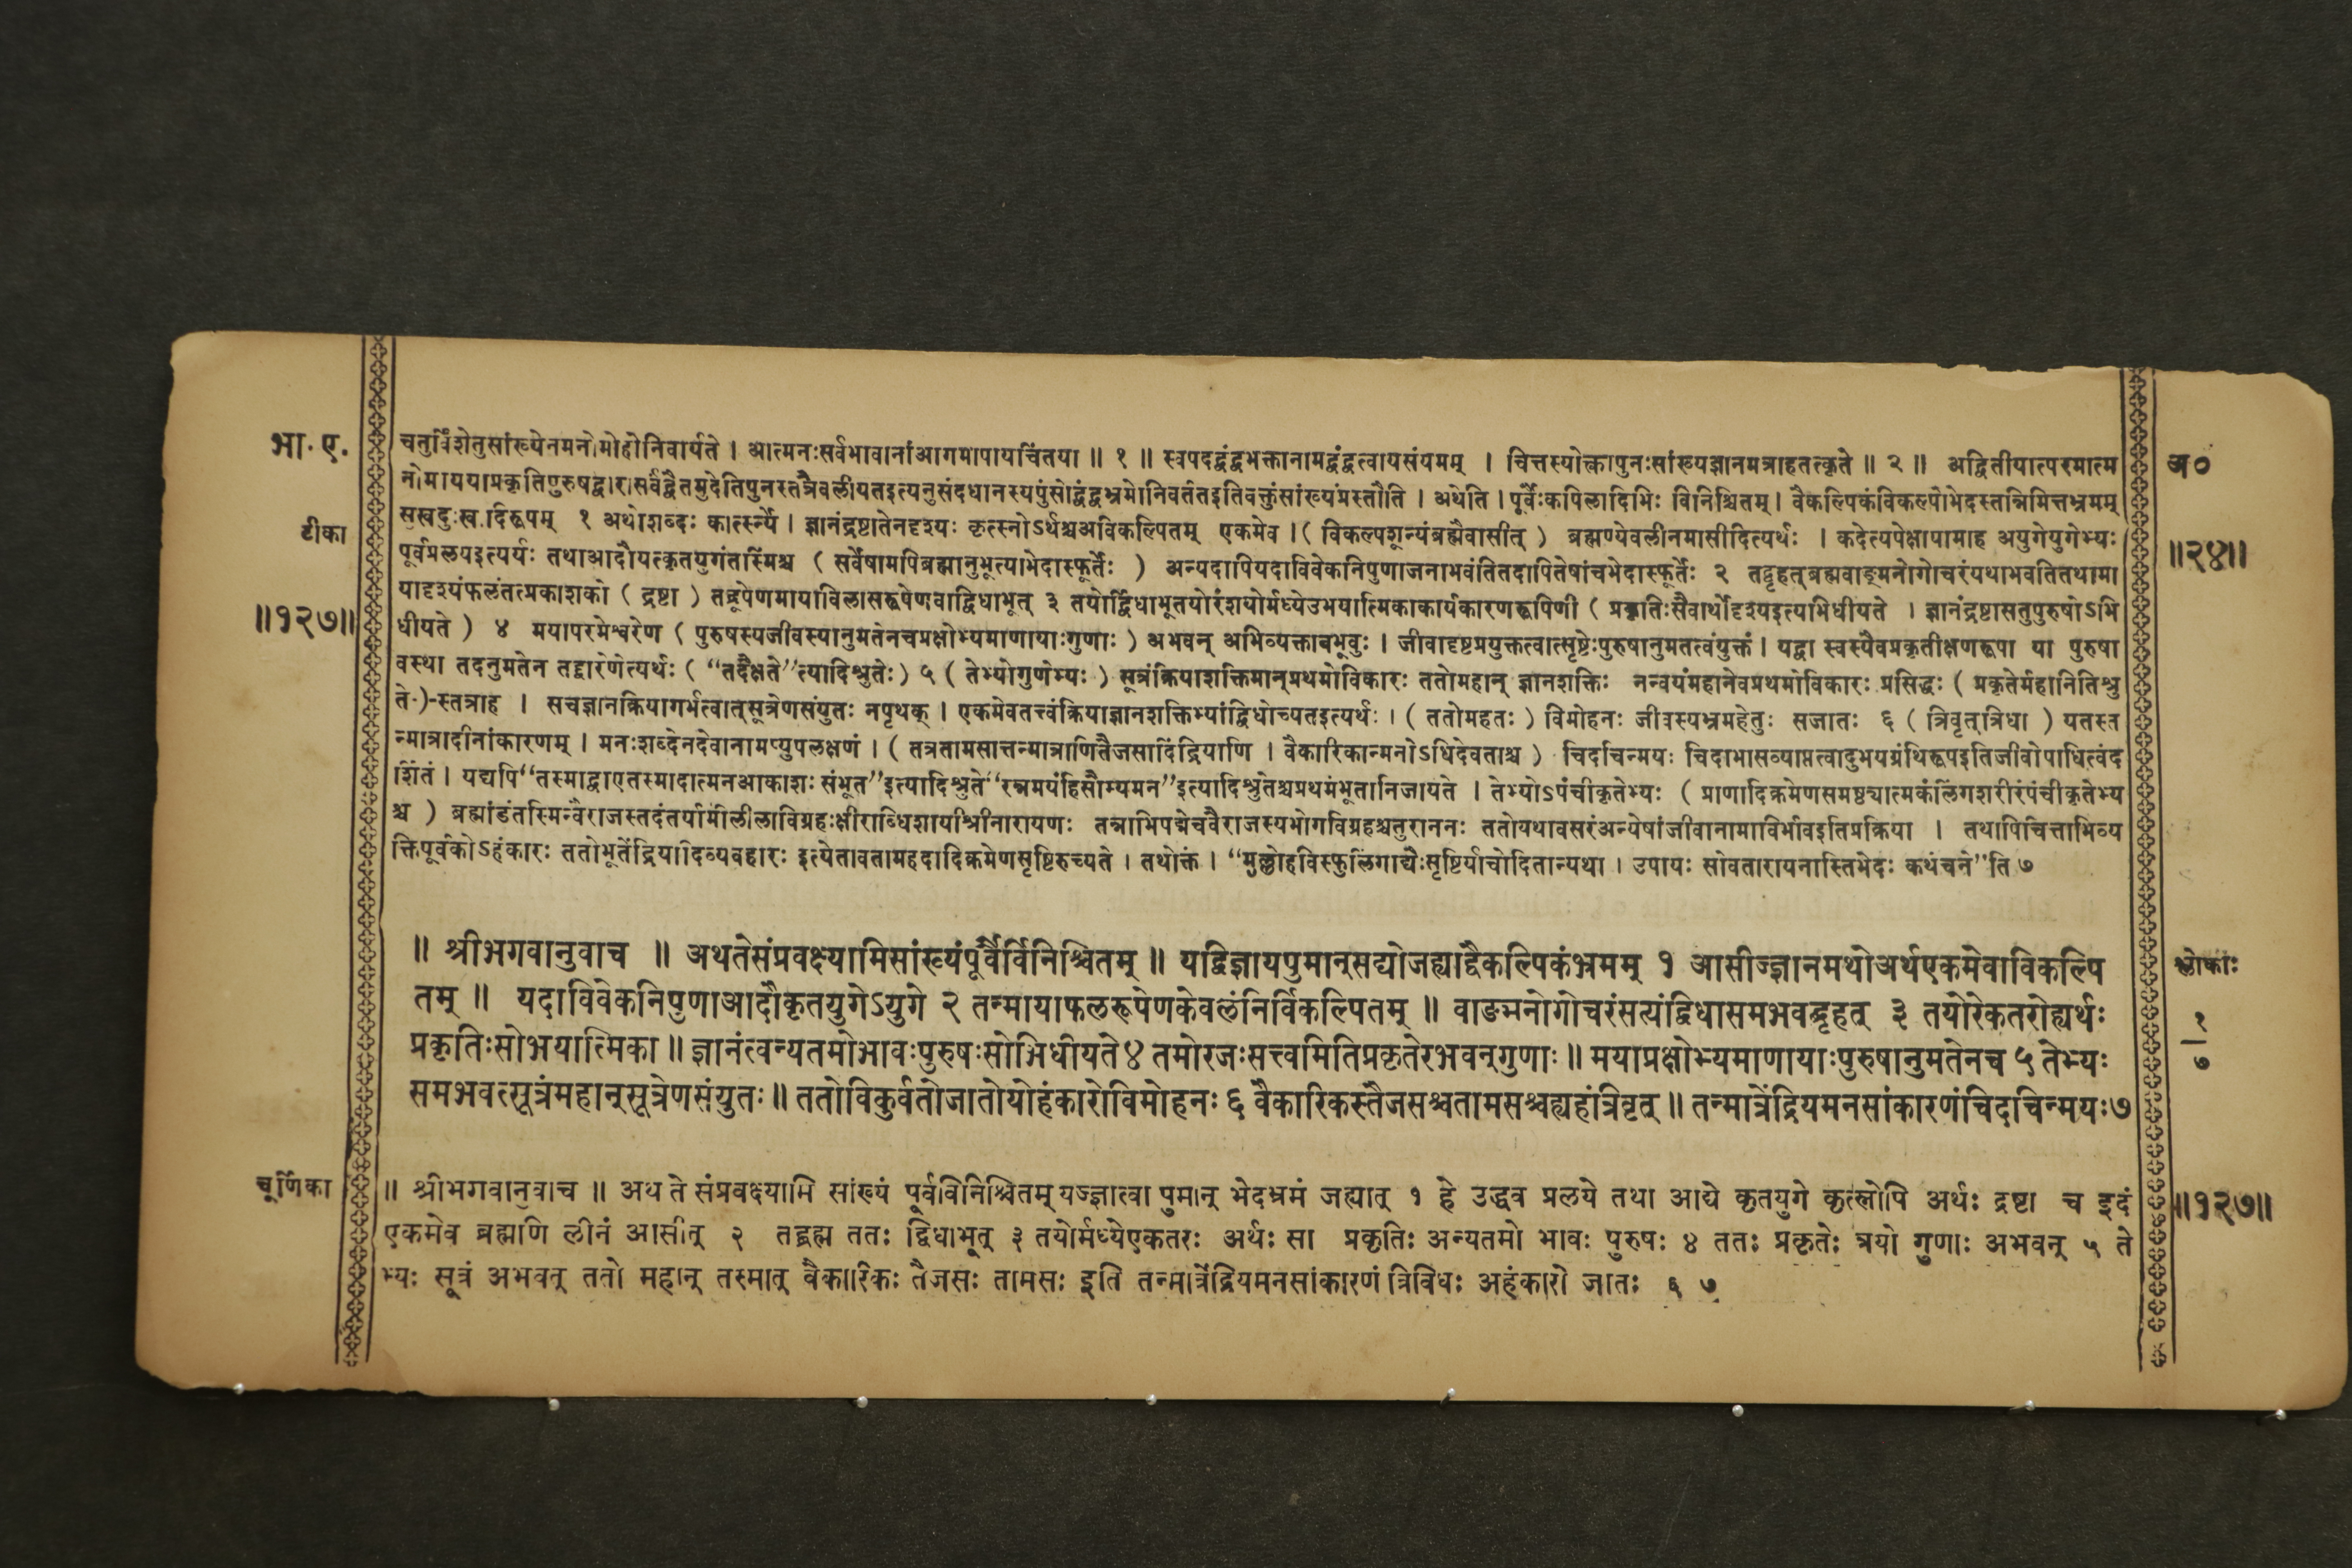 भा. ए.
टीका
॥१२७॥
चतुर्विंशेतुसांख्येनमनोमोहोनिवार्यते । आत्मनःसर्वभावानांआगमापायचिंतया ॥ १ ॥ स्वपदद्वंद्वभक्तानामद्वंद्वत्वायसंयमम् । चित्तस्योक्त्वापुनःसांख्यज्ञानमत्राहतत्कृते ॥ २ ॥ अद्वितीयात्परमात्म
नोमाययाप्रकृतिपुरुषद्वारासर्वंद्वैतमुदेतिपुनस्तत्रैवलीयतइत्यनुसंदधानस्यपुंसोद्वंद्वभ्रमोनिवर्ततइतिवक्तुंसांख्यंप्रस्तौति । अथेति । पूर्वैःकपिलादिभिः विनिश्चितम् । वैकल्पिकंविकल्पोभेदस्तन्निमित्तभ्रमम्
सुखदुःखादिरूपम् १ अथोशब्दः कार्त्स्न्ये । ज्ञानंद्रष्टातेनदृश्यः कृत्स्नोऽर्थश्चअविकल्पितम् एकमेव । ( विकल्पशून्यंब्रह्मैवासीत् ) ब्रह्मण्येवलीनमासीदित्यर्थः । कदेत्यपेक्षायामाह अयुगेयुगेभ्यः
पूर्वप्रलयइत्यर्थः तथाआदौयत्कृतयुगंतस्मिंश्च ( सर्वेषामपिब्रह्मानुभूत्याभेदास्फूर्तेः ) अन्यदापियदाविवेकनिपुणाजनाभवंतितदापितेषांचभेदास्फूर्तेः २ तद्बृहत्ब्रह्मवाङ्मनोगोचरंयथाभवतितथामा
यादृश्यंफलंतत्प्रकाशको ( द्रष्टा ) तद्रूपेणमायाविलासरूपेणवाद्विधाभूत् ३ तयोर्द्विधाभूतयोरंशयोर्मध्येउभयात्मिकाकार्यकारणरूपिणी ( प्रकृतिःसैवार्थोदृश्यइत्यभिधीयते । ज्ञानंद्रष्टासतुपुरुषोऽभि
धीयते ) ४ मयापरमेश्वरेण ( पुरुषस्यजीवस्यानुमतेनचप्रक्षोभ्यमाणायाःगुणाः ) अभवन् अभिव्यक्ताबभूवुः । जीवादृष्टप्रयुक्तत्वात्सृष्टेःपुरुषानुमतत्वंयुक्तं । यद्वा स्वस्यैवप्रकृतीक्षणरूपा या पुरुषा
वस्था तदनुमतेन तद्द्वारेणेत्यर्थः ( “तदैक्षते”त्यादिश्रुतेः ) ५ ( तेभ्योगुणेभ्यः ) सूत्रंक्रियाशक्तिमान्प्रथमोविकारः ततोमहान् ज्ञानशक्तिः नन्वयंमहानेवप्रथमोविकारः प्रसिद्धः ( प्रकृतेर्महानितिश्रु
ते-)-स्तत्राह । सचज्ञानक्रियागर्भत्वात्सूत्रेणसंयुतः नपृथक् । एकमेवतत्त्वंक्रियाज्ञानशक्तिभ्यांद्विधोच्यतइत्यर्थः । ( ततोमहतः ) विमोहनः जीवस्यभ्रमहेतुः सजातः ६ ( त्रिवृत्त्रिधा ) यतस्त
न्मात्रादीनांकारणम् । मनःशब्देनदेवानामप्युपलक्षणं । ( तत्रतामसात्तन्मात्राणितैजसादिंद्रियाणि । वैकारिकान्मनोऽधिदेवताश्च ) चिदचिन्मयः चिदाभासव्याप्तत्वादुभयग्रंथिरूपइतिजीवोपाधित्वंद
र्शितं । यद्यपि“तस्माद्वाएतस्मादात्मनआकाशः संभूत”इत्यादिश्रुते“रन्नमयंहिसौम्यमन”इत्यादिश्रुतेश्चप्रथमंभूतानिजायते । तेभ्योऽपंचीकृतेभ्यः ( प्राणादिक्रमेणसमष्ट्यात्मकंलिंगशरीरंपंचीकृतेभ्य
श्च ) ब्रह्मांडंतस्मिन्वैराजस्तदंतर्यामीलीलाविग्रहःक्षीराब्धिशायीश्रीनारायणः तन्नाभिपद्मेचवैराजस्यभोगविग्रहश्चतुराननः ततोयथावसरंअन्येषांजीवानामाविर्भावइतिप्रक्रिया । तथापिचित्ताभिव्य
क्तिपूर्वकोऽहंकारः ततोभूतेंद्रियादिव्यवहारः इत्येतावतामहदादिक्रमेणसृष्टिरुच्यते । तथोक्तं । “मृल्लोहविस्फुलिंगाद्यैःसृष्टिर्याचोदितान्यथा । उपायः सोवतारायनास्तिभेदः कथंचने”ति ७
अ०
॥२४॥
॥ श्रीभगवानुवाच ॥ अथतेसंप्रवक्ष्यामिसांख्यंपूर्वैर्विनिश्चितम् ॥ यद्विज्ञायपुमान्सद्योजह्याद्वैकल्पिकंभ्रमम् १ आसीज्ज्ञानमथोअर्थएकमेवाविकल्पि
तम् ॥ यदाविवेकनिपुणाआदौकृतयुगेऽयुगे २ तन्मायाफलरूपेणकेवलंनिर्विकल्पितम् ॥ वाङ्मनोगोचरंसत्यंद्विधासमभवद्बृहत् ३ तयोरेकतरोह्यर्थः
प्रकृतिःसोभयात्मिका ॥ ज्ञानंत्वन्यतमोभावःपुरुषःसोभिधीयते४ तमोरजःसत्त्वमितिप्रकृतेरभवन्गुणाः ॥ मयाप्रक्षोभ्यमाणायाःपुरुषानुमतेनच ५ तेभ्यः
समभवत्सूत्रंमहान्सूत्रेणसंयुतः ॥ ततोविकुर्वतोजातोयोहंकारोविमोहनः ६ वैकारिकस्तैजसश्चतामसश्चह्यहंत्रिवृत् ॥ तन्मात्रेंद्रियमनसांकारणंचिदचिन्मयः७
श्लोकाः
१
७
चूर्णिका
॥ श्रीभगवानुवाच ॥ अथ ते संप्रवक्ष्यामि सांख्यं पूर्वविनिश्चितम् यज्ज्ञात्वा पुमान् भेदभ्रमं जह्यात् १ हे उद्धव प्रलये तथा आद्ये कृतयुगे कृत्स्नोपि अर्थः द्रष्टा च इदं
एकमेव ब्रह्मणि लीनं आसीत् २ तद्ब्रह्म ततः द्विधाभूत् ३ तयोर्मध्येएकतरः अर्थः सा प्रकृतिः अन्यतमो भावः पुरुषः ४ ततः प्रकृतेः त्रयो गुणाः अभवन् ५ ते
भ्यः सूत्रं अभवत् ततो महान् तस्मात् वैकारिकः तैजसः तामसः इति तन्मात्रेंद्रियमनसांकारणं त्रिविधः अहंकारो जातः ६ ७
॥१२७॥